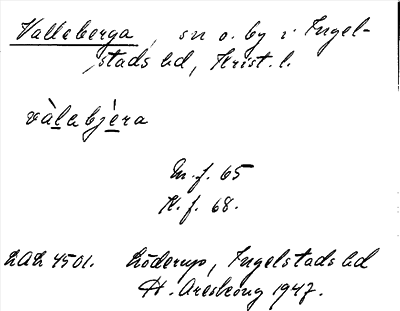 Valleberga, sn o. by i Ingel-
stads hd, Krist. l.
vàlabjèra
M. f. 65
K. f. 68.
LAL 4501. Löderup, Ingelstads hd
H. Areskoug 1947.